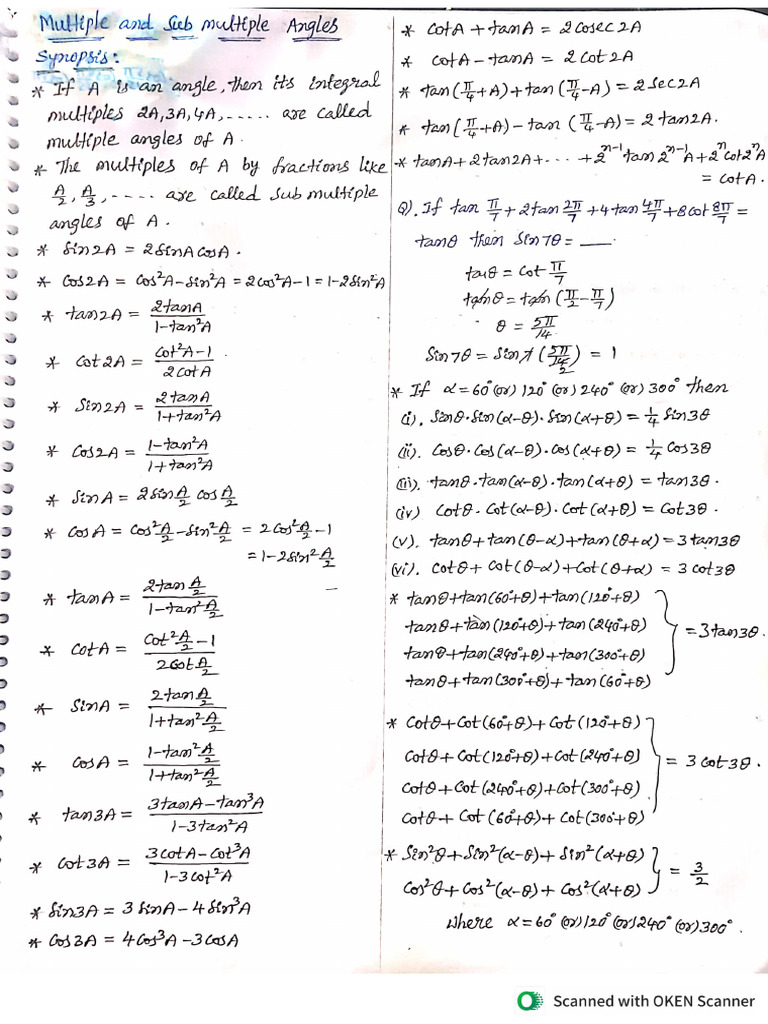 Multiple and Sub multiple Angles
Synopsis:
* If A is an angle, then its integral
multiples 2A, 3A, 4A, ..... are called
multiple angles of A.
* The multiples of A by fractions like
A/2, A/3, ..... are called Sub multiple
angles of A.
* Sin2A = 2SinA CosA.
* Cos2A = Cos²A-Sin²A = 2Cos²A-1 = 1-2Sin²A
* tan2A = 2tanA / 1-tan²A
* Cot2A = Cot²A-1 / 2CotA
* Sin2A = 2tanA / 1+tan²A
* Cos2A = 1-tan²A / 1+tan²A
* SinA = 2Sin A/2 Cos A/2
* CosA = Cos² A/2 - Sin² A/2 = 2Cos² A/2 - 1
= 1-2Sin² A/2
* tanA = 2tan A/2 / 1-tan² A/2
* CotA = Cot² A/2 - 1 / 2Cot A/2
* SinA = 2tan A/2 / 1+tan² A/2
* CosA = 1-tan² A/2 / 1+tan² A/2
* tan3A = 3tanA-tan³A / 1-3tan²A
* Cot3A = 3CotA-Cot³A / 1-3Cot²A
* Sin3A = 3SinA-4Sin³A
* Cos3A = 4Cos³A-3CosA
* CotA+tanA = 2Cosec2A
* CotA-tanA = 2Cot2A
* tan(π/4+A)+tan(π/4-A) = 2Sec2A
* tan(π/4+A)-tan(π/4-A) = 2tan2A.
* tanA+2tan2A+...+2ⁿ⁻¹tan2ⁿ⁻¹A+2ⁿCot2ⁿA
= CotA.
Q). If tan π/7+2tan 2π/7+4tan 4π/7+8Cot 8π/7 =
tanθ then Sin7θ = ___.
tanθ = Cot π/7
tanθ = tan(π/2-π/7)
θ = 5π/14
Sin7θ = Sin7(5π/14) = 1
2
* If α=60° (or) 120° (or) 240° (or) 300° then
(i). Sinθ.Sin(α-θ).Sin(α+θ) = 1/4 Sin3θ
(ii). Cosθ.Cos(α-θ).Cos(α+θ) = 1/4 Cos3θ
(iii). tanθ.tan(α-θ).tan(α+θ) = tan3θ.
(iv) Cotθ.Cot(α-θ).Cot(α+θ) = Cot3θ.
(v). tanθ+tan(θ-α)+tan(θ+α) = 3tan3θ
(vi). Cotθ+Cot(θ-α)+Cot(θ+α) = 3Cot3θ
* tanθ+tan(60°+θ)+tan(120°+θ)
tanθ+tan(120°+θ)+tan(240°+θ)
= 3tan3θ
tanθ+tan(240°+θ)+tan(300°+θ)
tanθ+tan(300°+θ)+tan(60°+θ)
* Cotθ+Cot(60°+θ)+Cot(120°+θ)
Cotθ+Cot(120°+θ)+Cot(240°+θ)
= 3Cot3θ.
Cotθ+Cot(240°+θ)+Cot(300°+θ)
Cotθ+Cot(60°+θ)+Cot(300+θ)
* Sin²θ+Sin²(α-θ)+Sin²(α+θ)
= 3/2
Cos²θ+Cos²(α-θ)+Cos²(α+θ)
Where α=60° (or) 120° (or) 240° (or) 300°.
Scanned with OKEN Scanner